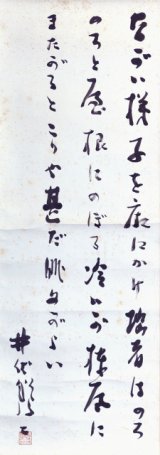 ながい梯子を廂にかけ拙者はのろ
のろと屋根にのぼる冷いが棟瓦に
またがるとこりや甚だ眺めがよい
井伏鱒二